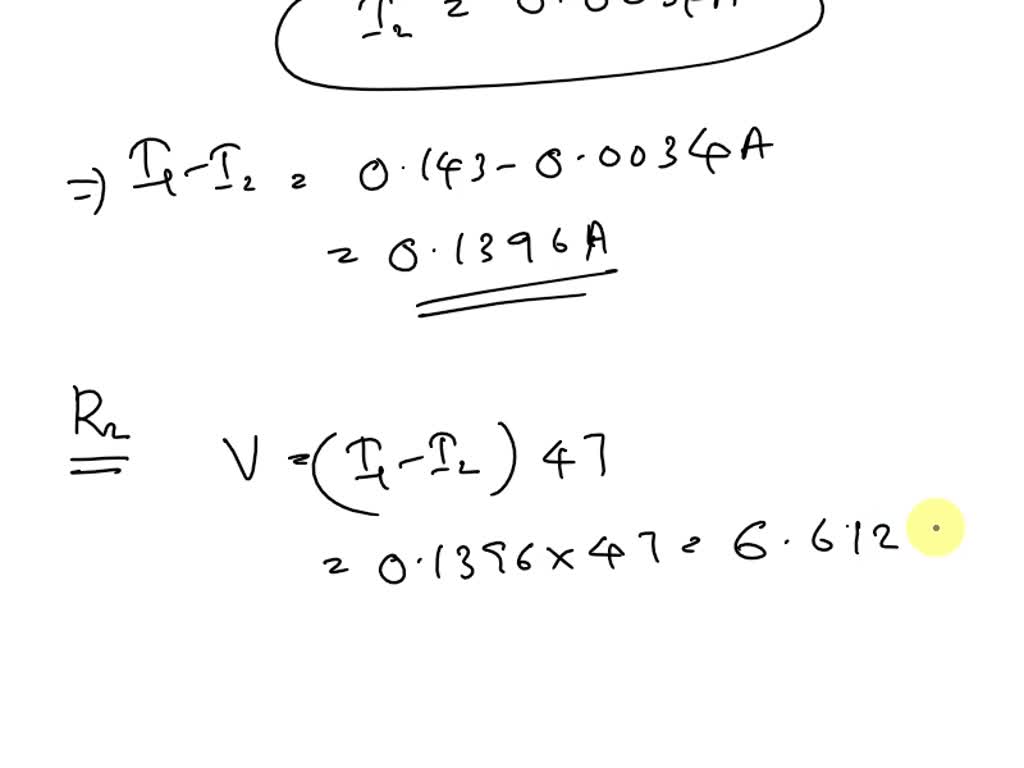 I₂ = 0.0034A
=> I₁-I₂ = 0.143-0.0034A
= 0.1396A
R₂
V=(I₁-I₂)47
= 0.1396×47= 6.612